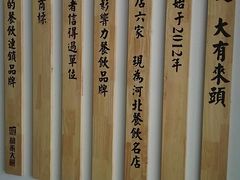 大有來頭
始于2012年
店六家 現為河北餐飲名店
影響力餐飲品牌
者信得過單位
商標
的餐飲連鎖品牌